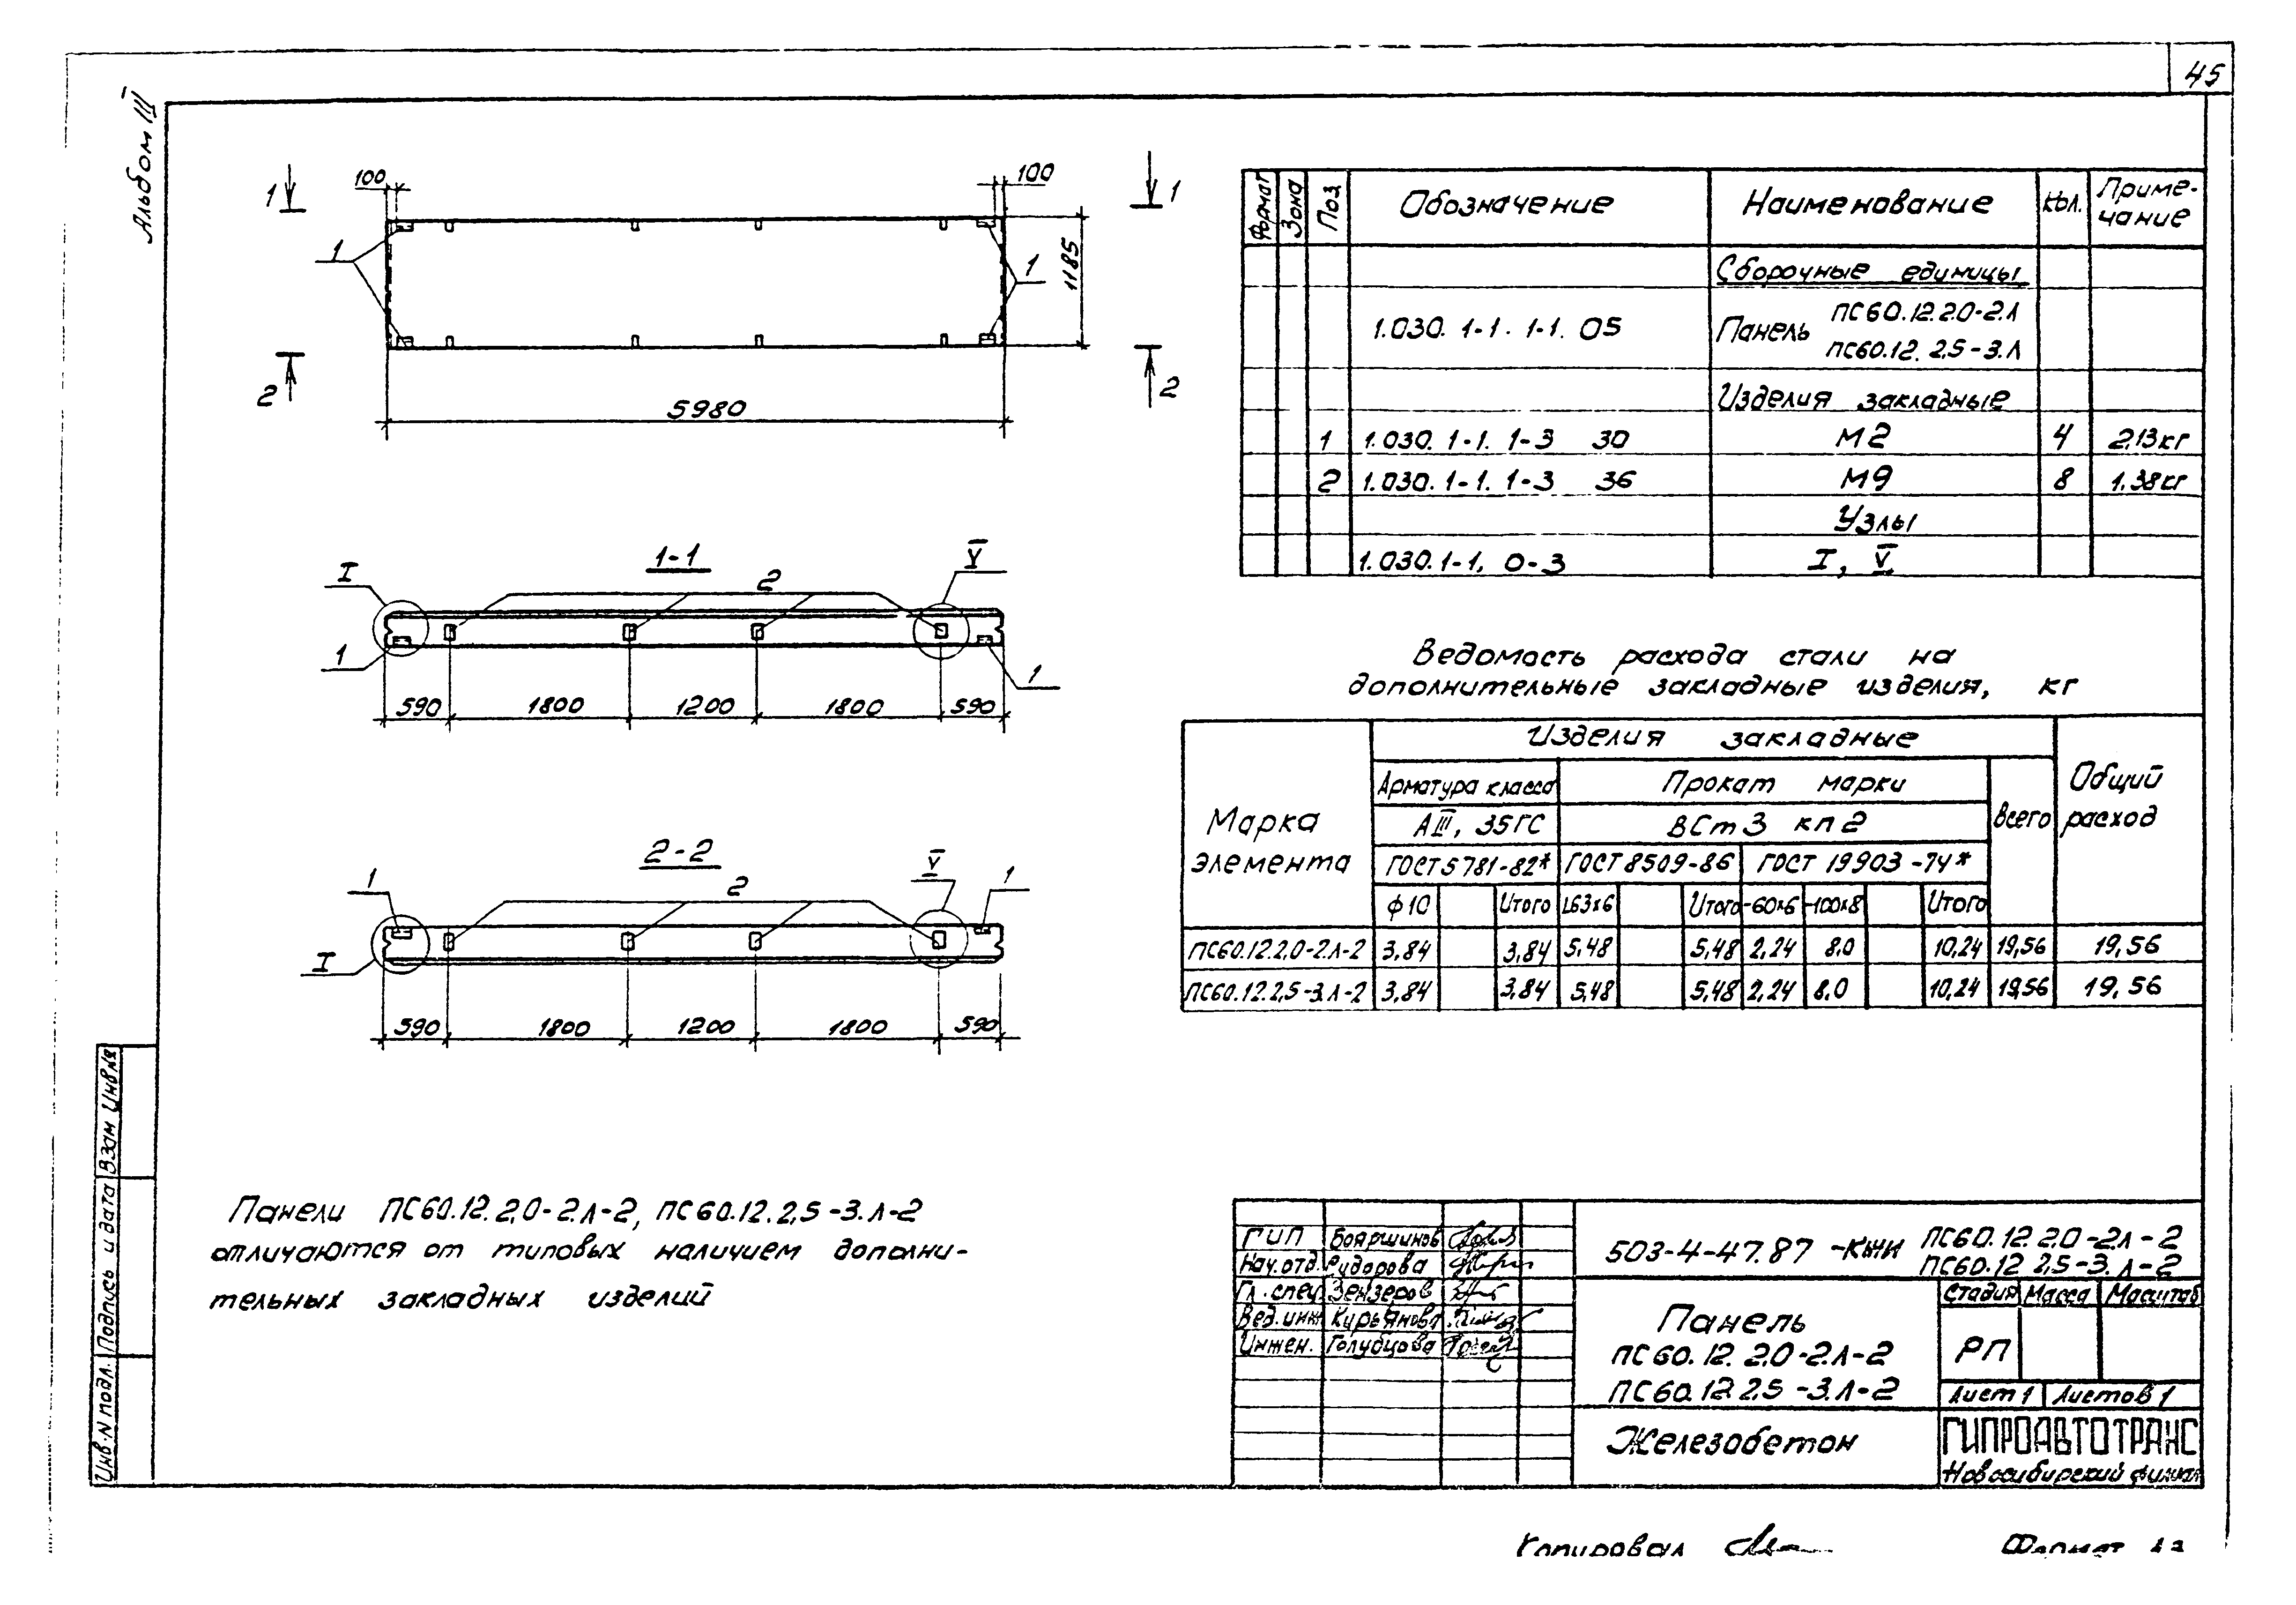 45
Альбом III
1
100
100
1
1
1
1185
2
2
5980
1-1
I
V
2
1
1
590 1800 1200 1800 590
2-2
1
2
V
1
I
590 1800 1200 1800 590
Панели ПС60.12.2,0-2.Л-2, ПС60.12.2,5-3.Л-2
отличаются от типовых наличием дополни-
тельных закладных изделий
Формат Зона Поз. Обозначение Наименование Кол. Приме-
чание
Сборочные единицы
1.030.1-1. 1-1. 05 Панель ПС60.12.2.0-2.Л
ПС60.12. 2,5-3.Л
Изделия закладные
1 1.030.1-1. 1-3 30 М2 4 2,13кг
2 1.030.1-1. 1-3 36 М9 8 1.38кг
Узлы
1.030.1-1, 0-3 I, V
Ведомость расхода стали на
дополнительные закладные изделия, кг
Марка
элемента
Изделия закладные
Общий
расход
Арматура класса Прокат марки Всего
АIII, 35ГС ВСт3 кп2
ГОСТ5781-82* ГОСТ8509-86 ГОСТ 19903-74*
ф10 Итого L63х6 Итого -60х6 -100х8 Итого
ПС60.12.2,0-2.Л-2 3,84 3,84 5,48 5,48 2,24 8,0 10,24 19,56 19,56
ПС60.12.2,5-3.Л-2 3,84 3,84 5,48 5,48 2,24 8,0 10,24 19,56 19,56
Взам Инв№
Подпись и дата
Инв.N подл.
ГИП Бояршинов
Нач.отд. Рудорова
Гл.спец. Зензеров
Вед.инж Кирьянова
Инжен. Голубцова
503-4-47.87 -КЖИ ПС60.12.2.0-2.Л-2
ПС60.12 2,5-3.Л-2
Панель
ПС60.12. 2,0-2.Л-2
ПС60.12 2,5-3.Л-2
Стадия Масса Масштаб
РП
Лист 1 Листов 1
Железобетон
ГИПРОАВТОТРАНС
Новосибирский филиал
Копировал
Формат